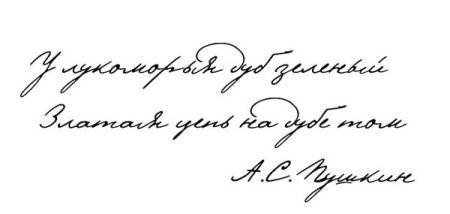 У лукоморья дуб зеленый
Златая цепь на дубе том
А.С. Пушкин